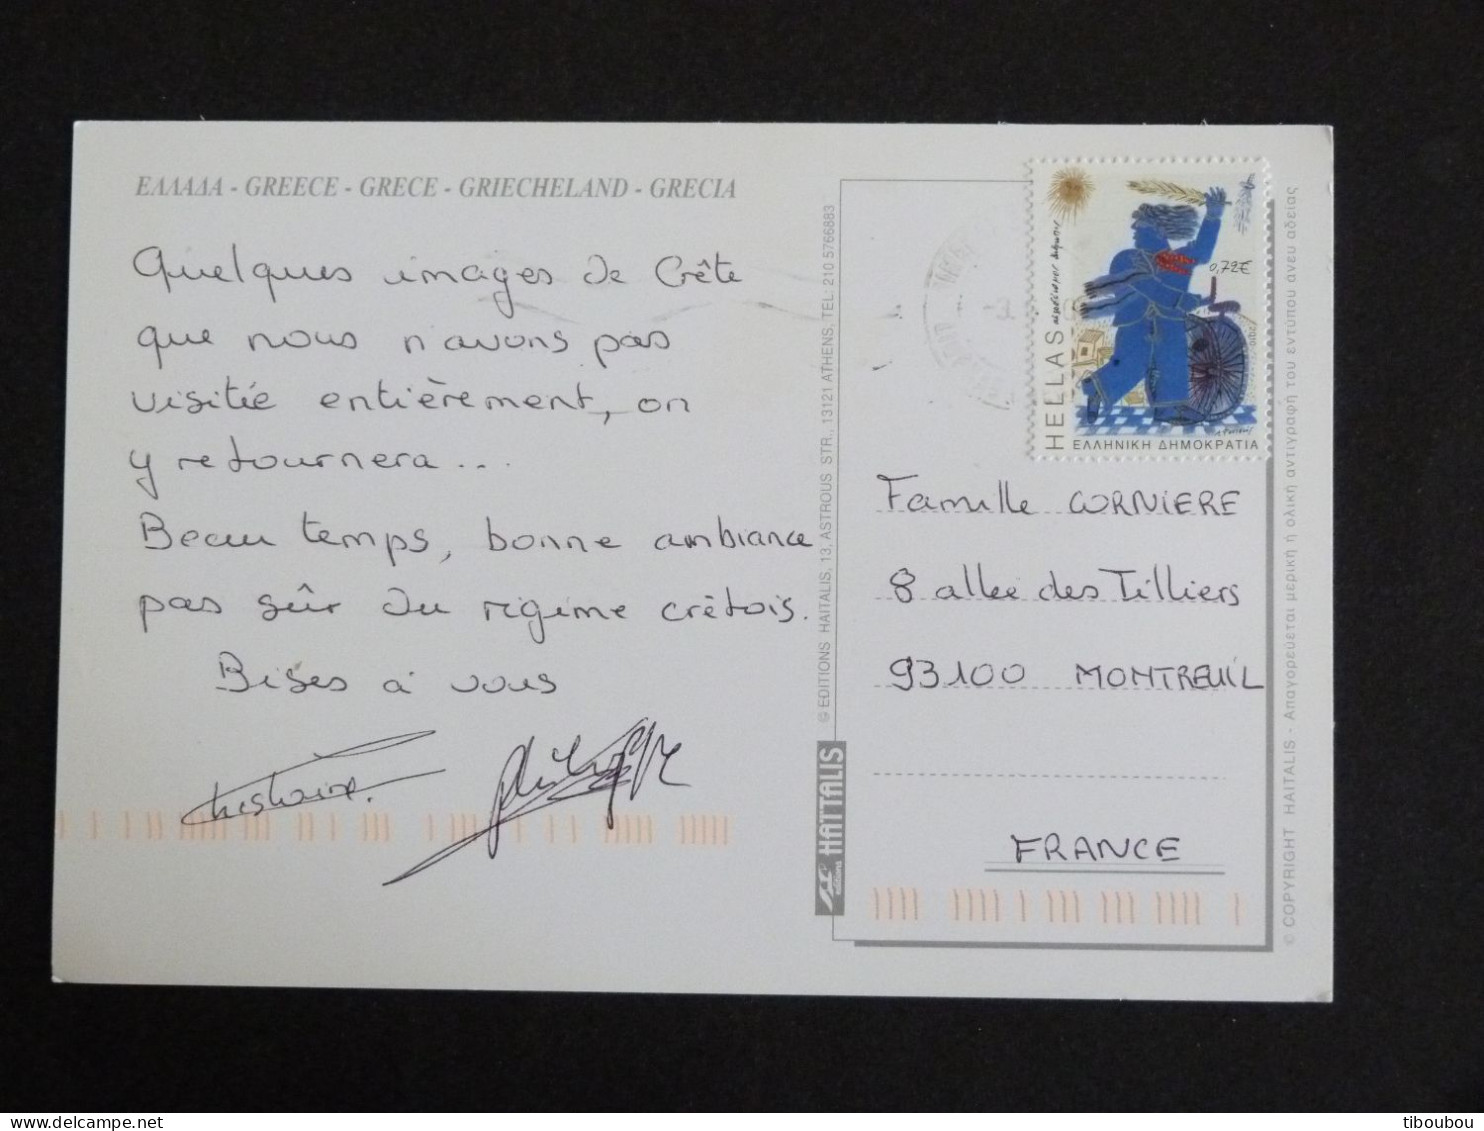 ΕΛΛΑΔΑ - GREECE - GRECE - GRIECHELAND - GRECIA
Quelques images de Crête
que nous n'avons pas
visitée entièrement, on
y retournera...
Beau temps, bonne ambiance
pas sûr du régime crétois.
Bises à vous
© EDITIONS HAITALIS, 13, ASTROUS STR., 13121 ATHENS, TEL: 210 5766883
HAΪTALIS
HELLAS
0,72€
ΕΛΛΗΝΙΚΗ ΔΗΜΟΚΡΑΤΙΑ
Famille CORNIERE
8 allée des Tilliers
93100 MONTREUIL
FRANCE
© COPYRIGHT HAITALIS - Απαγορεύεται μερική ή ολική αντιγραφή του εντύπου άνευ αδείας
tiboubou.